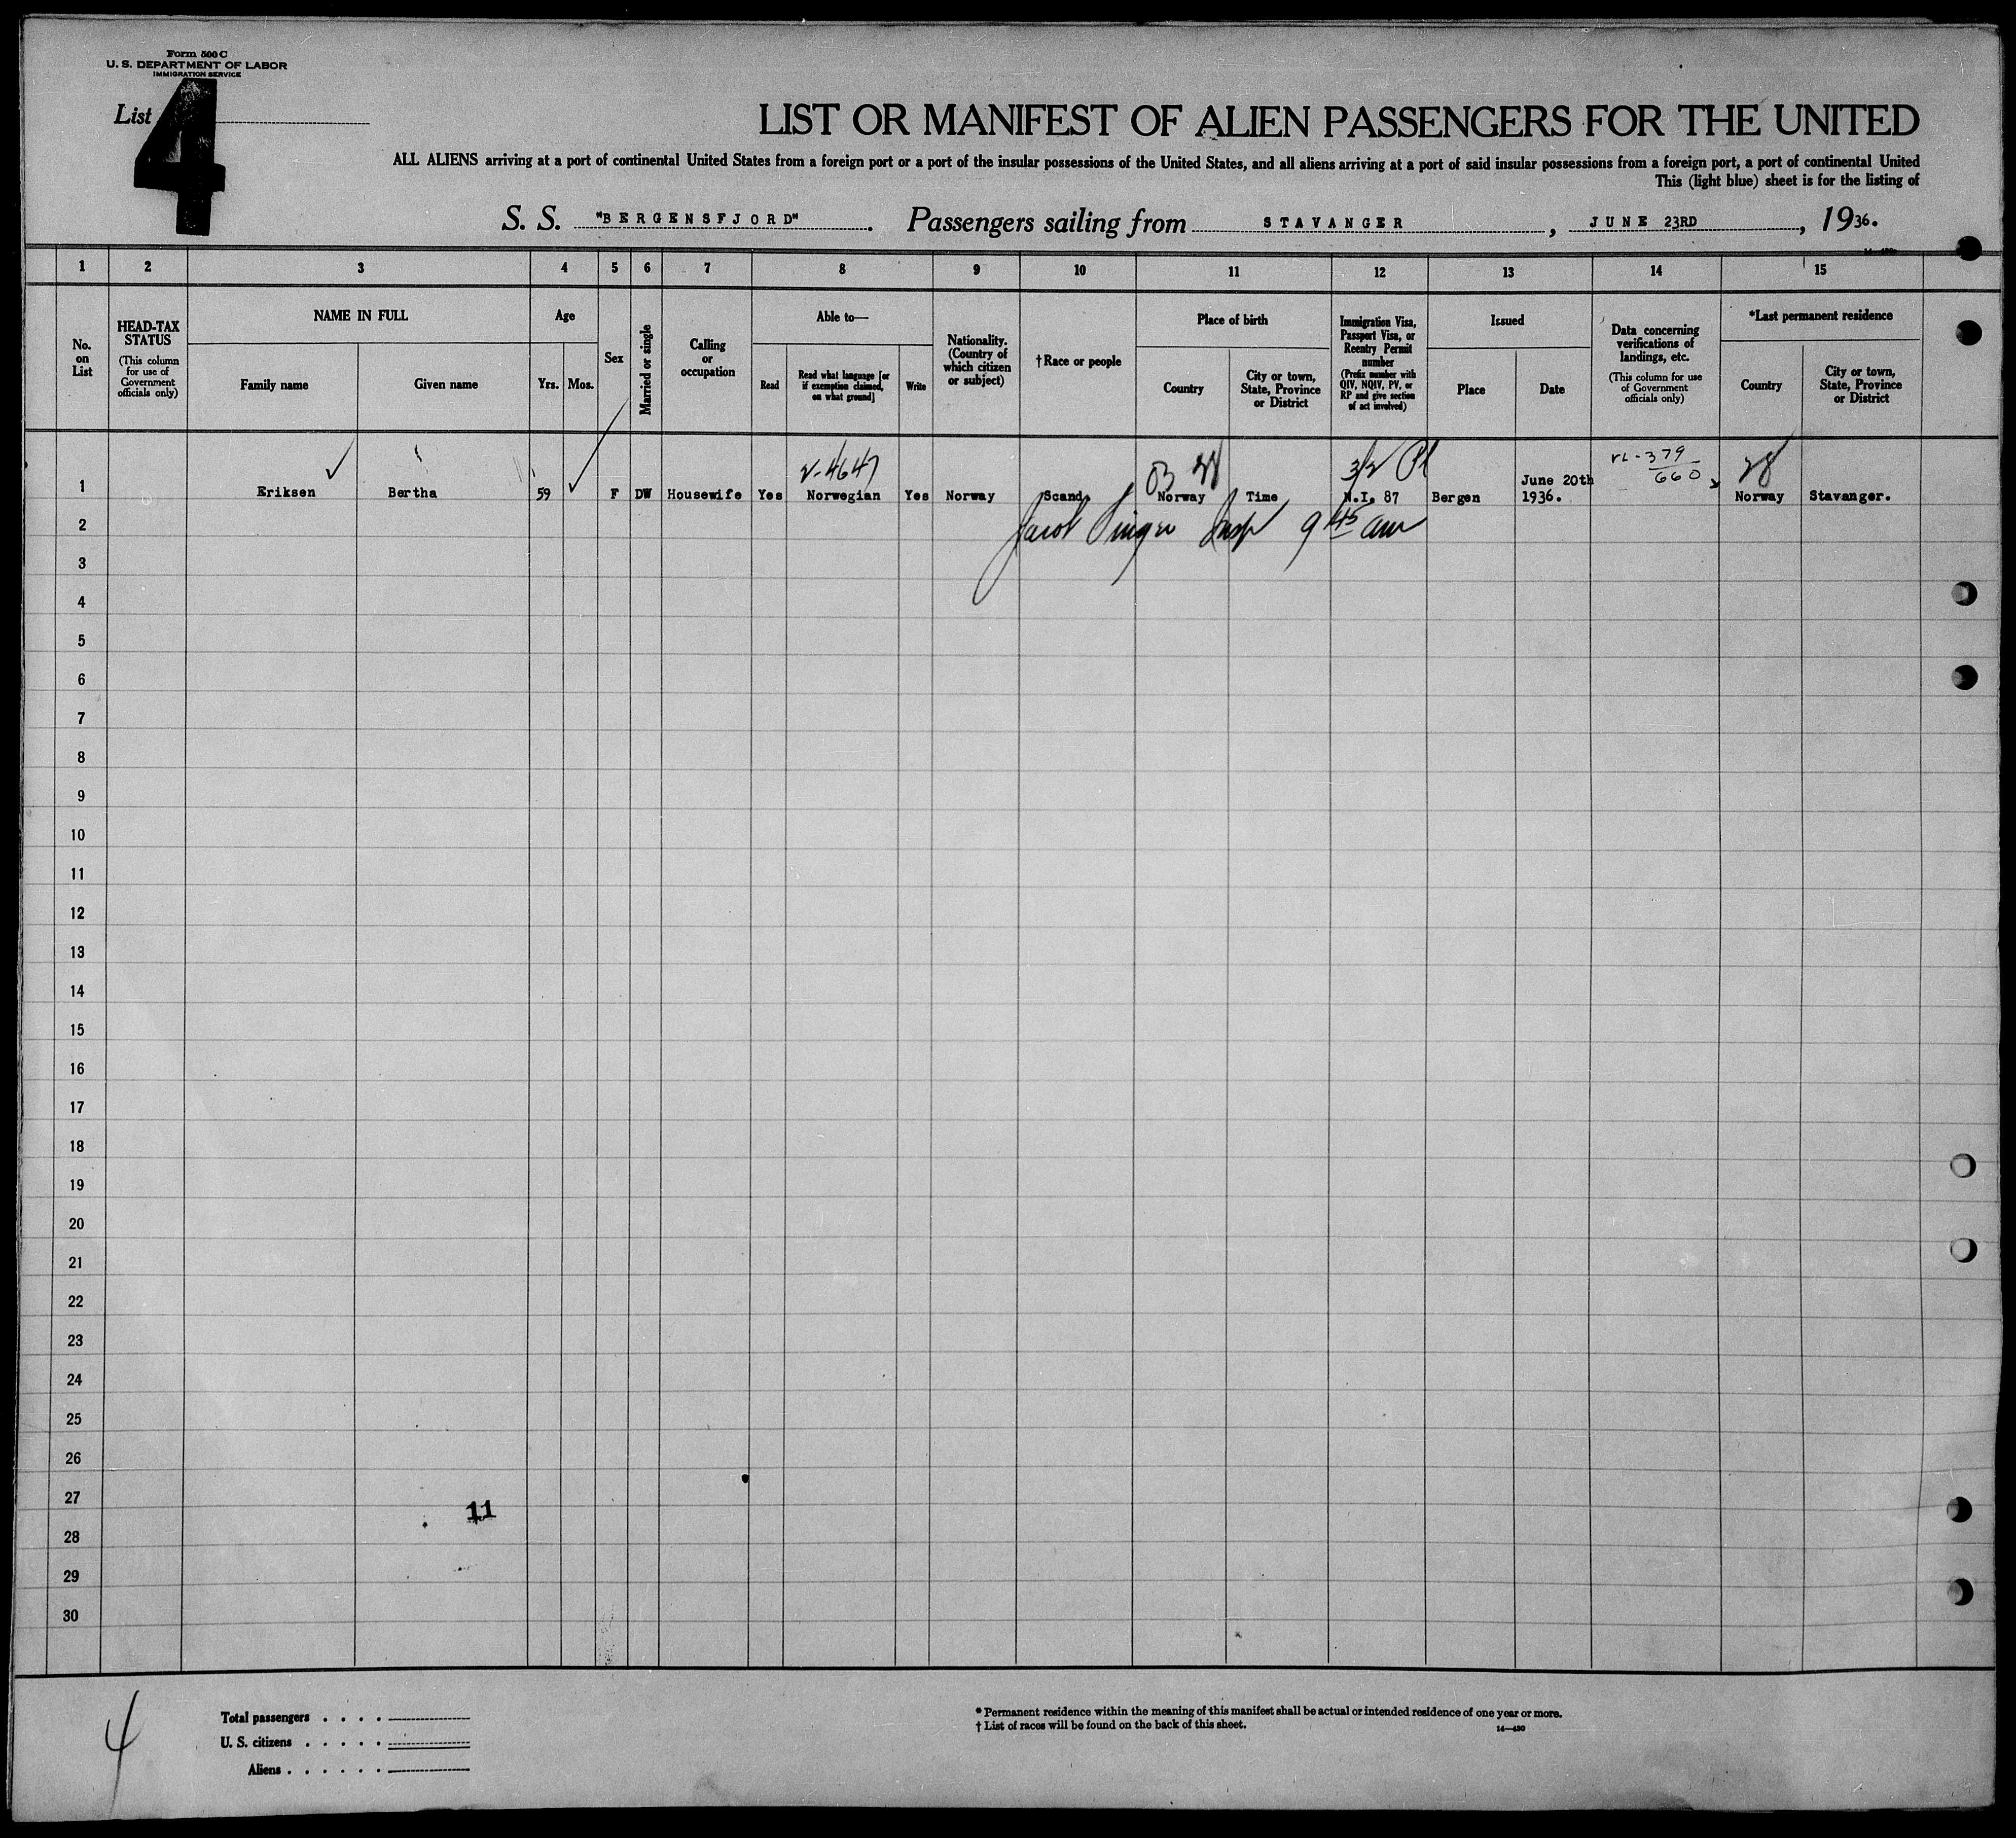 Form 500 C
U. S. DEPARTMENT OF LABOR
IMMIGRATION SERVICE
List 4
LIST OR MANIFEST OF ALIEN PASSENGERS FOR THE UNITED
ALL ALIENS arriving at a port of continental United States from a foreign port or a port of the insular possessions of the United States, and all aliens arriving at a port of said insular possessions from a foreign port, a port of continental United
This (light blue) sheet is for the listing of
S. S. "BERGENSFJORD". Passengers sailing from STAVANGER, JUNE 23RD, 1936.
1 2 3 4 5 6 7 8 9 10 11 12 13 14 15
No. on List
HEAD-TAX STATUS (This column for use of Government officials only)
NAME IN FULL
Family name Given name
Age
Yrs. Mos.
Sex
Married or single
Calling or occupation
Able to—
Read
Read what language [or if exemption claimed, on what ground]
Write
Nationality. (Country of which citizen or subject)
†Race or people
Place of birth
Country
City or town, State, Province or District
Immigration Visa, Passport Visa, or Reentry Permit number (Prefix number with QIV, NQIV, PV, or RP and give section of act involved)
Issued
Place Date
Data concerning verifications of landings, etc. (This column for use of Government officials only)
*Last permanent residence
Country
City or town, State, Province or District
V-4647 3/2 379
660 28
1 Eriksen Bertha 59 F DW Housewife Yes Norwegian Yes Norway Scand Norway Time N.I. 87 Bergen June 20th 1936. Norway Stavanger.
Jacob Singer Insp 9 45 am
2
3
4
5
6
7
8
9
10
11
12
13
14
15
16
17
18
19
20
21
22
23
24
25
26
27
11
28
29
30
4
Total passengers . . . .
U. S. citizens . . . . .
Aliens . . . . . .
* Permanent residence within the meaning of this manifest shall be actual or intended residence of one year or more.
† List of races will be found on the back of this sheet.
14—430